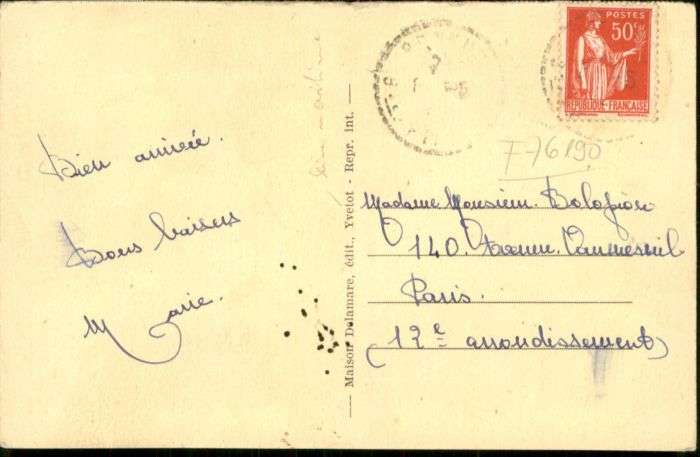 Bien arrivée.
Bons baisers
Marie.
Maison Delamare, édit., Yvetot - Repr. int.
POSTES
50c
REPUBLIQUE FRANÇAISE
F76190
Madame Monsieur
140. Avenue
Paris.
(12e arrondissement)